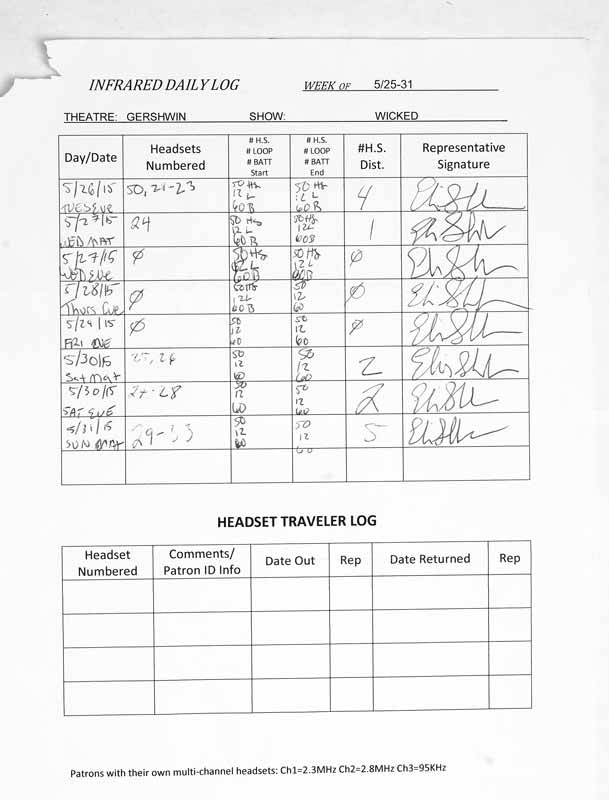 INFRARED DAILY LOG WEEK OF 5/25-31
THEATRE: GERSHWIN SHOW: WICKED
Day/Date Headsets Numbered # H.S. # LOOP # BATT Start # H.S. # LOOP # BATT End #H.S. Dist. Representative Signature
5/26/15 TUES EVE 50, 21-23 50 HS 12 L 60 B 50 HS 12 L 60 B 4
5/27/15 WED MAT 24 50 HS 12 L 60 B 50 HS 12L 60B 1
5/27/15 WED EVE Ø 50 HS 12 L 60 B 50 HS 12 L 60 B Ø
5/28/15 Thurs Eve Ø 50 HS 12L 60 B 50 12 60 Ø
5/29/15 FRI EVE Ø 50 12 60 50 12 60 Ø
5/30/15 Sat Mat 25, 26 50 12 60 50 12 60 2
5/30/15 SAT EVE 27-28 50 12 60 50 12 60 2
5/31/15 SUN MAT 29-33 50 12 60 50 12 60 5
HEADSET TRAVELER LOG
Headset Numbered Comments/ Patron ID Info Date Out Rep Date Returned Rep
Patrons with their own multi-channel headsets: Ch1=2.3MHz Ch2=2.8MHz Ch3=95KHz